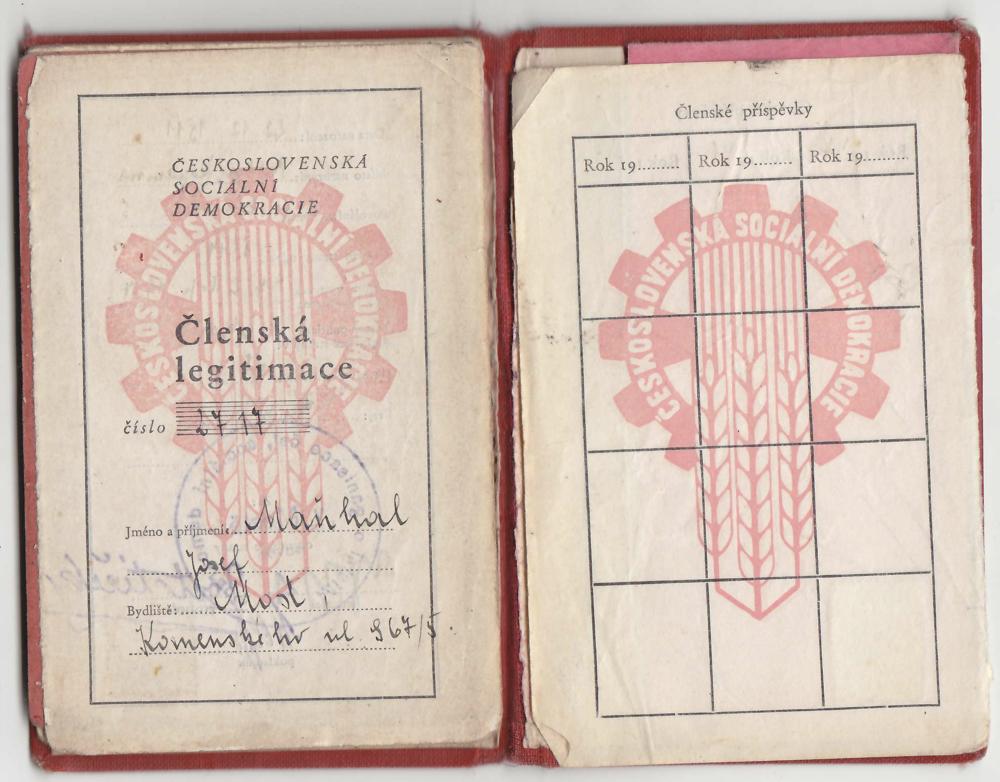 ČESKOSLOVENSKÁ
SOCIÁLNÍ
DEMOKRACIE
ČESKOSLOVENSKÁ SOCIÁLNÍ DEMOKRACIE
Členská
legitimace
číslo 2717
Jméno a příjmení: Maňhal
Josef
Bydliště: Most
Komenského ul. 967/5.
Členské příspěvky
Rok 19......... Rok 19........ Rok 19..........
ČESKOSLOVENSKÁ SOCIÁLNÍ DEMOKRACIE